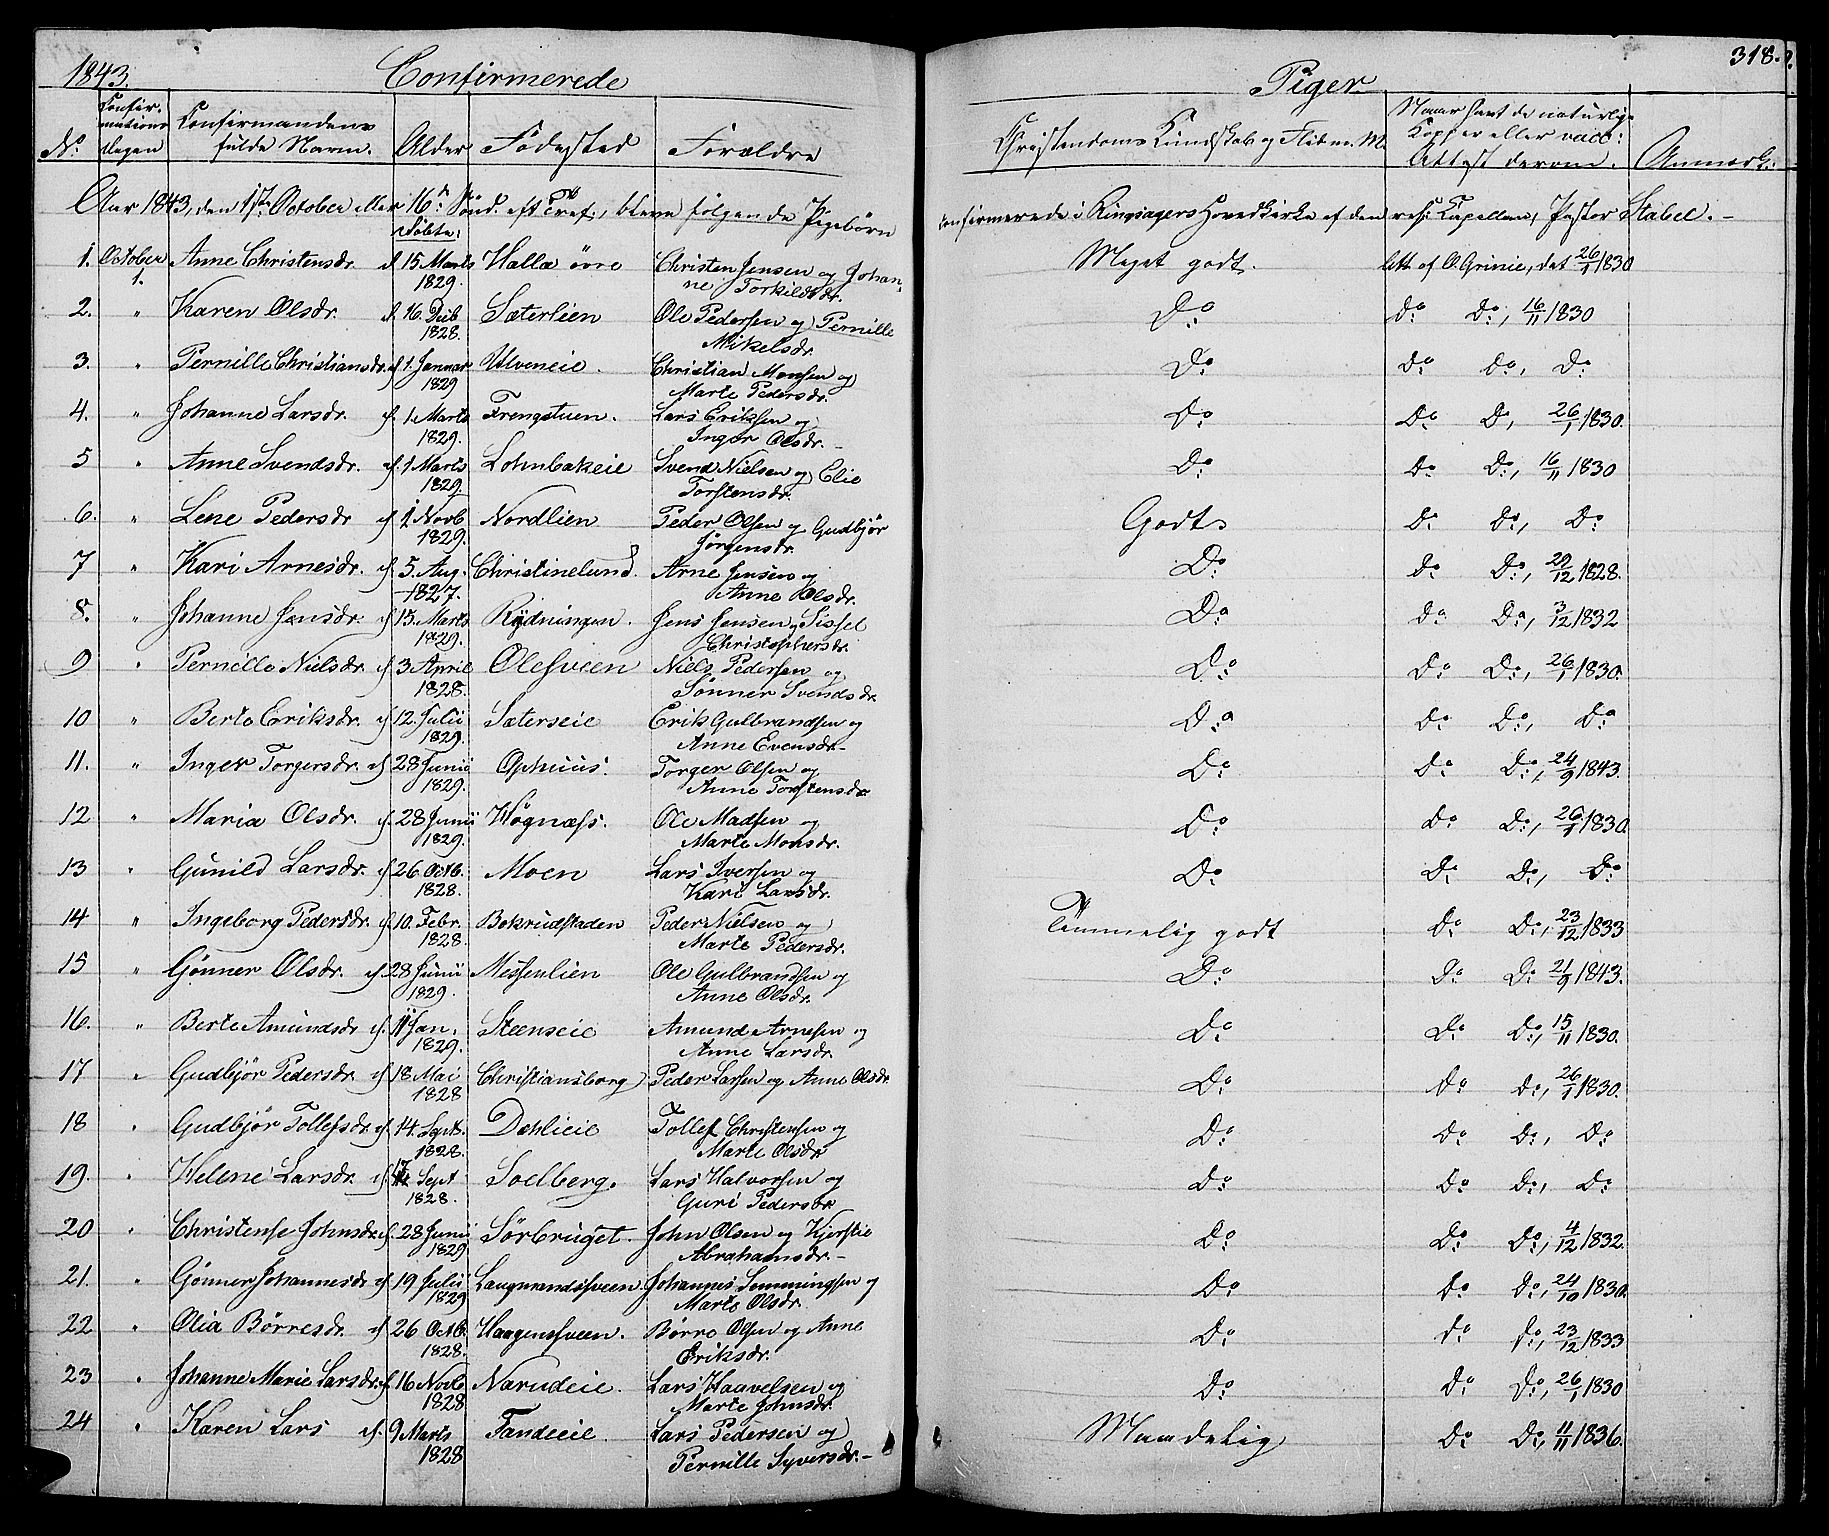 1843. Confirmerede Piger 318.
No Confirmations Dagen Confirmandens fulde Navn. Alder Fødested Forældre Christendoms Kundskab og Flid m. M. Naar havt de naturlige Kopper eller vacc: Attest derom. Anmærk:
Aar 1843, den 1ste October eller 16de Sønd. eft Tref:, bleve følgende Pigebørn confirmerede i Ringsagers Hovedkirke af den res: Kapellan, Pastor Stabel. -
døbte:
1. October 1. Anne Christensdr. d. 15. Marts 1829. Halla övre Christen Jensen og Johanne Torkildsdr. Meget godt. Att. af O. Grinie, dat 26/1 1830
2. " Karen Olsdr. d. 16. Deb. 1828. Sæterlien Ole Pedersen og Pernille Mikelsdr. Do Do Do, 16/11 1830
3. " Pernille Christiansdr. d. 1. Januar 1829 Ulveneie. Christian Monsen og Marte Pedersdr. Do Do Do, Do
4. " Johanne Larsdr. d. 1. Marts 1829. Frengstuen. Lars Eriksen og Inger Olsdr. - Do Do Do, 26/1 1830.
5 " Anne Svendsdr. d. 1 Marts 1829. Lohnbakeie Svend Nielsen og Elie Torstensdr. Do Do Do, 16/11 1830
6. " Lene Pedersdr d. 1 Novb. 1829. Nordlien Peder Olsen og Gudbjör Jörgensdr. Godt Do Do, Do
7 " Kari Arnesdr. d. 5. Aug. 1827. Christinelund. Arne Jensen og Anne Olsdr. Do Do Do, 29/12 1828.
8. " Johanne Jensdr. d. 15. Marts 1829. Rydningen. Jens Jensen og Sissel Christophersdr. Do Do Do, 3/12 1832
9 " Pernille Nielsdr. d. 3 April 1828. Olesveen Niels Pedersen og Sønner Svendsdr. Do Do Do, 26/1 1830.
10 " Berte Eriksdr. d. 12. Julii 1829. Sæterseie Erik Gulbrandsen og Anne Evensdr. - Do Do Do, Do
11. " Inger Torgersdr. d. 28 Junii 1829. Ophuus. Torger Olsen og Anne Torstensdr Do Do Do, 24/9 1843.
12 " Maria Olsdr. d. 28 Junii 1829. Høgnæss. Ole Madsen og Marte Monsdr. Do Do Do, 26/1 1830.
13 " Gunild Larsdr. d. 26 Octb. 1828. Moen Lars Iversen og Kari Larsdr. Do Do Do, Do
14 " Ingeborg Pedersdr. d. 10. Febr. 1828. Bokrudstaden Peder Nielsen og Marte Pedersdr. Temmelig godt Do Do, 23/12 1833
15 " Gønner Olsdr. d. 28 Junii 1829. Messenlien Ole Gulbrandsen og Anne Olsdr. Do Do Do 21/9 1843.
16. " Berte Amundsdr. d. 11 Jan. 1829. Steenseie Amund Arnesen og Anne Larsdr. Do Do Do, 15/11 1830.
17 " Gudbjör Pedersdr. d. 18 Mai 1828 Christiansborg Peder Larsen og Anne Olsdr. Do Do Do, 26/1 1830.
18 " Gudbjör Tollefsdr. d. 14. Sept. 1828. Dehlieie Tollef Christensen og Marte Olsdr. Do Do Do, Do
19. " Helene Larsdr. d. Sept 1828. Soelberg. Lars Halvorsen og Guri Pedersdr. Do Do Do, Do
20 " Christense Johnsdr. d. 28 Junii 1829 Sörbruget. John Olsen og Kjerstie Abrahamsdr. - Do Do Do, 4/12 1832.
21. " Gönner Johannesdr d. 19 Julii 1829 Laugmandssveen. Johannes Lemmingsen og Marte Olsdr. Do Do Do, 24/10 1830.
22 " Olia Börresdr. d. 26 Octb. 1828. Haagensveen. Börre Olsen og Anne Eriksdr. Do Do Do, 23/12 1833
23 " Johanne Marie Larsdr. d. 16 Novb 1828 Narudeie. Lars Haavelsen og Marte Johnsdr. Do Do Do, 26/1 1830
24 " Karen Lars d. 9 Marts 1828 Fandeeie. Lars Pedersen og Pernille Syversdr. - Maadelig Do Do, 11/11 1836.